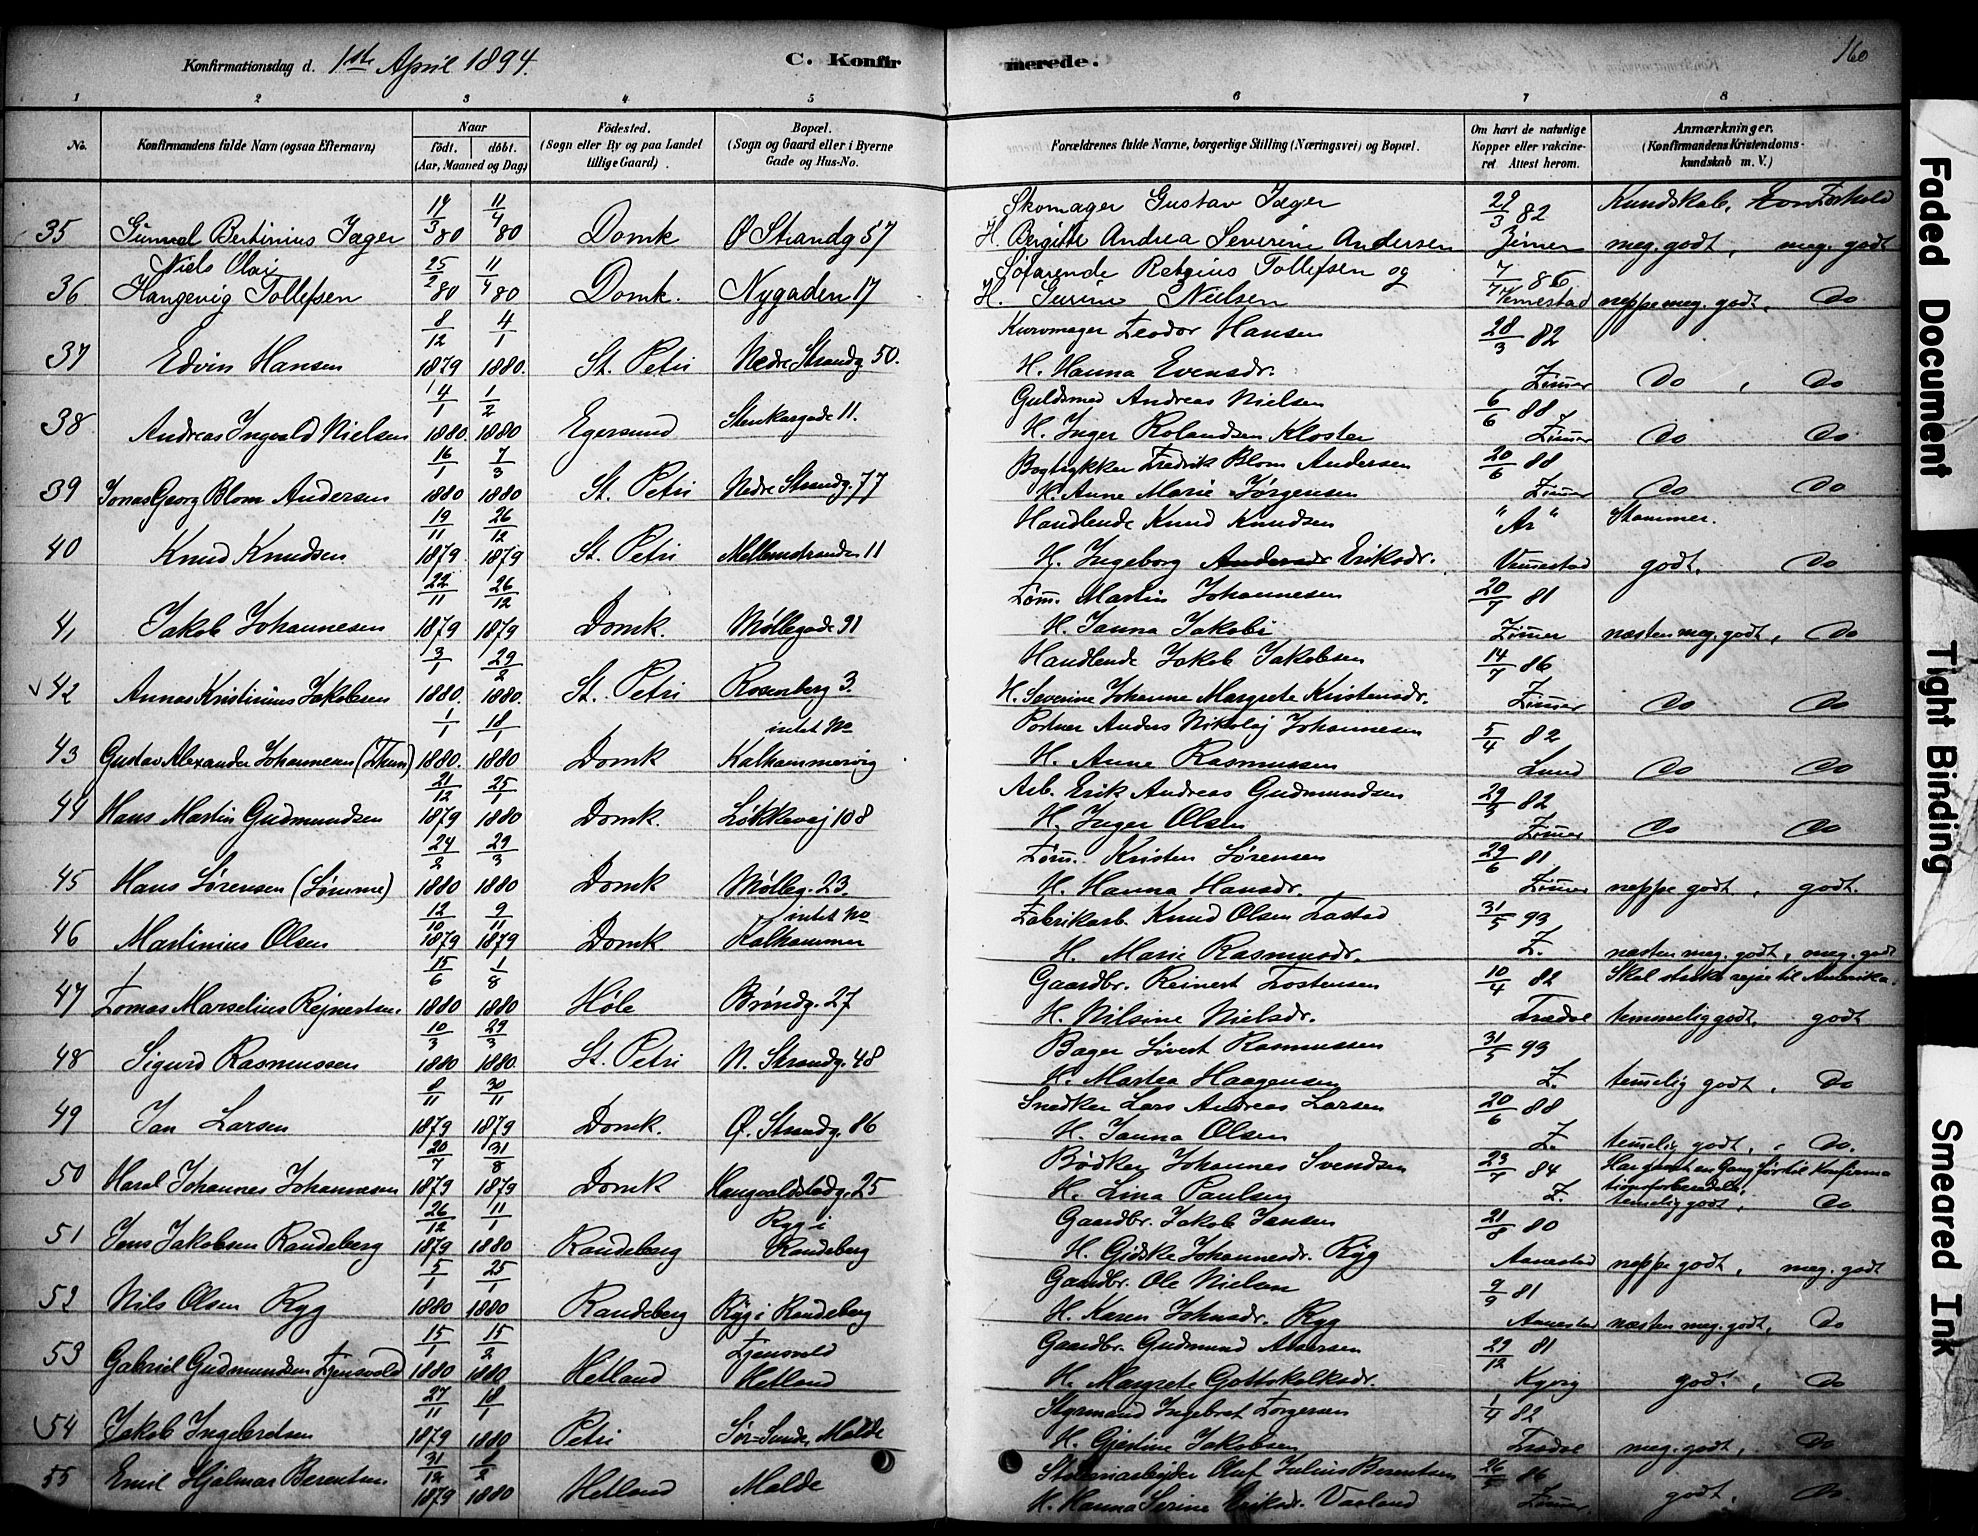 Konfirmationsdag d. 1ste April 1894.
C. Konfirmerede.
160
1 2 3 4 5 6 7 8
No.
Konfirmandens fulde Navn (ogsaa Efternavn)
Naar
født. døbt.
(Aar, Maaned og Dag)
Fødested.
(Sogn eller By og paa Landet
tillige Gaard).
Bopæl.
(Sogn og Gaard eller i Byerne
Gade og Hus-No.
Forældrenes fulde Navne, borgerlige Stilling (Næringsvei) og Bopæl.
Om havt de naturlige
Kopper eller vakcine-
ret Attest herom.
Anmærkninger.
(Konfirmandens Kristendoms-
kundskab m. V.)
19/3 11/4 Skomager Gustav Jæger 29/3 82 Kundskab, Forhold
35 Gunval Bertinius Jæger 80 80 Domk Ø Strandg 57 H. Birgitte Andrea Severine Andersen Zimer meg. godt, meg. godt
Niels Olai 25/2 11/4 Søfarende Retzius Tollefsen og 7/7 86
36 Hangevig Tollefsen 80 80 Domk. Nygaden 17 H. Serine Nielsen Vemestad neppe meg. godt, Do
8/12 4/1 Kurvmager Teodor Hansen 28/3 82
37 Edvin Hansen 1879 1880. St. Petri Nedre Strandg. 50. H. Hanna Evensdr. Zimer Do, Do
4/1 1/2 Guldsmed Andreas Nielsen 6/6 88
38 Andreas Ingvald Nielsen 1880. 1880 Egersund Stenkargade 11. H. Inger Rolandsen Kloster Zimer Do Do
16/1 7/3 Bogtrykker Fredrik Blom Andersen 20/6 88
39 Jonas Georg Blom Andersen 1880 1880 St. Petri Nedre Strandg. 77 H. Anne Marie Jørgensen Zimer Do Do
19/11 26/12 Handlende Knud Knudsen "Ar" Stammer.
40 Knud Knudsen 1879. 1879 St. Petri Mellemstranden 11 H. Ingeborg Eriksdr. Vemestad godt, Do
22/11 26/12 Tøm. Martin Johannesen 20/7 81
41 Jakob Johannesen 1879 1879 Domk. Møllegade 91 H. Janna Jakobi Zimer næsten meg. godt, Do
3/1 29/2 Handlende Jakob Jakobsen 14/7 86
42 Annas Kristinius Jakobsen 1880. 1880. St. Petri Rosenberg 3. H. Severine Johanne Margrete Kristensdr. Zimer Do Do
1/1 18/1 intet No Portner Anders Nikolaj Johannesen 5/4 82
43 Gustav Alexander Johannesen 1880. 1880 Domk Kalhammervig H. Anne Rasmussen Lund Do Do
21/12 25/1 Arb. Erik Andreas Gudmundsen 29/3 82
44 Hans Martin Gudmundsen 1879 1880 Domk. Løkkevej 108 H. Inger Olsen Zimer Do Do
24/2 29/3 Tøm. Kristen Sørensen 29/6 81
45 Hans Sørensen (Sømme) 1880 1880 Domk Mølleg. 23. H. Hanna Hansdr. Zimer neppe godt, godt.
12/10 9/11 intet No Fabrikarb. Knud Olsen Tastad 31/5 93
46 Martinius Olsen 1879 1879 Domk Kalhammer H. Marie Rasmusdr. Z. næsten meg. godt, meg. godt
15/6 1/8 Gaardbr. Reinert Tostensen 10/4 82 Skal straks rejse til Amerika.
47 Tomas Marselius Rejnertsen. 1880 1880 Høle Brøndg. 27 H. Nilsine Nielsdr. Tradsl temmelig godt, godt
10/3 29/3 Bager Sivert Rasmussen 31/5 93
48 Sigurd Rasmussen 1880 1880. St. Petri N. Strandg. 48 H. Martea Haagensen Z. temelig godt, Do
8/11 30/11 Snedker Lars Andreas Larsen 20/6 88
49 Jan Larsen 1879 1879 Domk. Ø. Strandg. 86 H. Janna Olsen Z. temelig godt, Do.
20/7 31/8 Bødker Johannes Svendsen 23/7 84 Har gaaet en Gang før til Konfirma
50 Johannes Johannesen 1879 1879 Domk Haugvaldstadg. 25 H. Lina Paulsen Z. tionsforberedelse, temelig godt, Do
26/12 11/1 Ryg i Gaardbr. Jakob Jansen 21/8 80
51 Jens Jakobsen Randeberg 1879 1880 Randeberg Randeberg H. Gidske Johannesdr. Ryg Aanestad neppe godt, meg. godt
5/1 25/1 Gaardbr. Ole Nielsen 9/9 81
52 Nils Olsen Ryg 1880 1880 Randeberg Ryg i Randeberg H. Karen Johnsdr. Ryg Aanestad næsten meg. godt, Do
15/1 15/2 Tjensvold Gaardbr. Gudmund 29/12 81
53 Gabriel Gudmundsen Tjensvold 1880 1880. Hetland Hetland H. Margrete Gottskalksdr. godt, Do
27/11 18/1 Styrmand Ingebret Torgersen 1/4 82
54 Jakob Ingebretsen 1879 1880 Petri Sør-Sunde, Malde H. Gjertine Jakobsen Tradsl meg. godt, Do
31/12 8/2 Oluf Julius Berentsen 26/5 86
55 Emil Hjalmar Berentsen 1879 1880 Hetland Malde H. Hanna Serine Eriksdr. Varland Zimer godt, Do.
Faded Document
Tight Binding
Smeared Ink